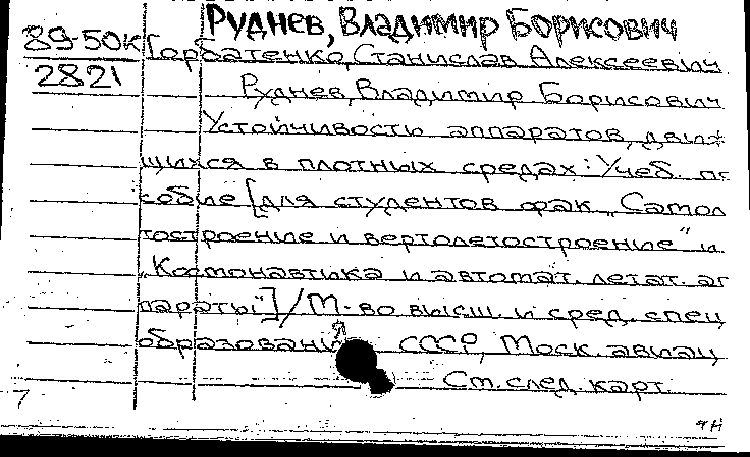 Руднев, Владимир Борисович
89-50к Горбатенко, Станислав Алексеевич
2821 Руднев, Владимир Борисович
Устойчивость аппаратов, движ
щихся в плотных средах: Учеб. по
собие [для студентов фак. „Самол
тостроение и вертолетостроение" и
„Космонавтика и автомат. летат. ап
параты"] / М-во высш. и сред. спец
образовани СССР, Моск. авиац
См. след. карт.
7